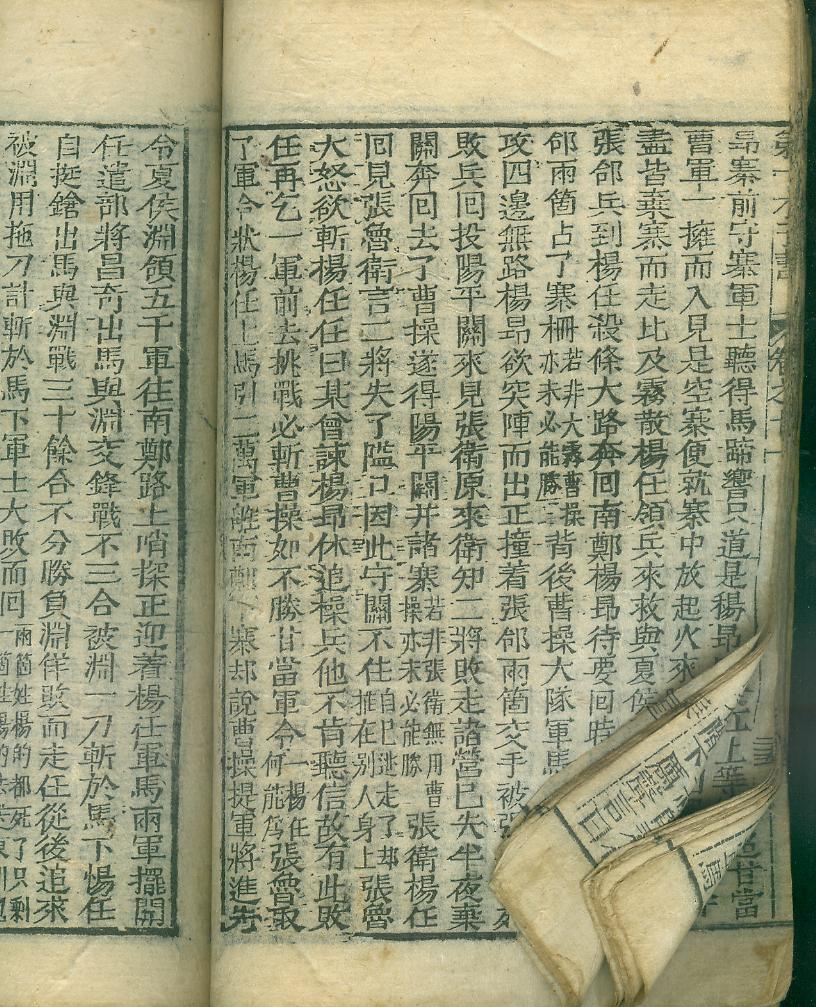 第一才子書 卷之十一
昻寨前守寨軍士聽得馬蹄響只道是楊昻
曹軍一擁而入見是空寨便就寨中放起火來
盡皆棄寨而走比及霧散楊任領兵來救與夏侯
張郃兵到楊任殺條大路奔回南鄭楊昻待要回時
郃兩箇占了寨柵若非大霧曹操亦未必能勝背後曹操大隊軍馬
攻四邊無路楊昻欲突陣而出正撞着張郃兩箇交手被張
敗兵回投陽平關來見張衛原來衛知二將敗走諸營已失半夜棄
關奔回去了曹操遂得陽平關并諸寨若非張衛無用曹操亦未必能勝張衛楊任
囘見張魯衛言二將失了隘口因此守關不住自己逃走了却推在别人身上張魯
大怒欲斬楊任任曰某曾諫楊昻休追操兵他不肯聽信故有此敗
任再乞一軍前去挑戰必斬曹操如不勝甘當軍令一楊任何能爲張魯取
了軍令狀楊任上馬引二萬軍離南鄭下寨却說曹操提軍將進先
令夏侯淵領五千軍往南鄭路上哨探正迎着楊任軍馬兩軍擺開
任遣部將昌奇出馬與淵交鋒戰不三合被淵一刀斬於馬下楊任
自挺鎗出馬與淵戰三十餘合不分勝負淵佯敗而走任從後追來
被淵用拖刀計斬於馬下軍士大敗而回兩箇姓楊的都死了只剩一箇姓楊的